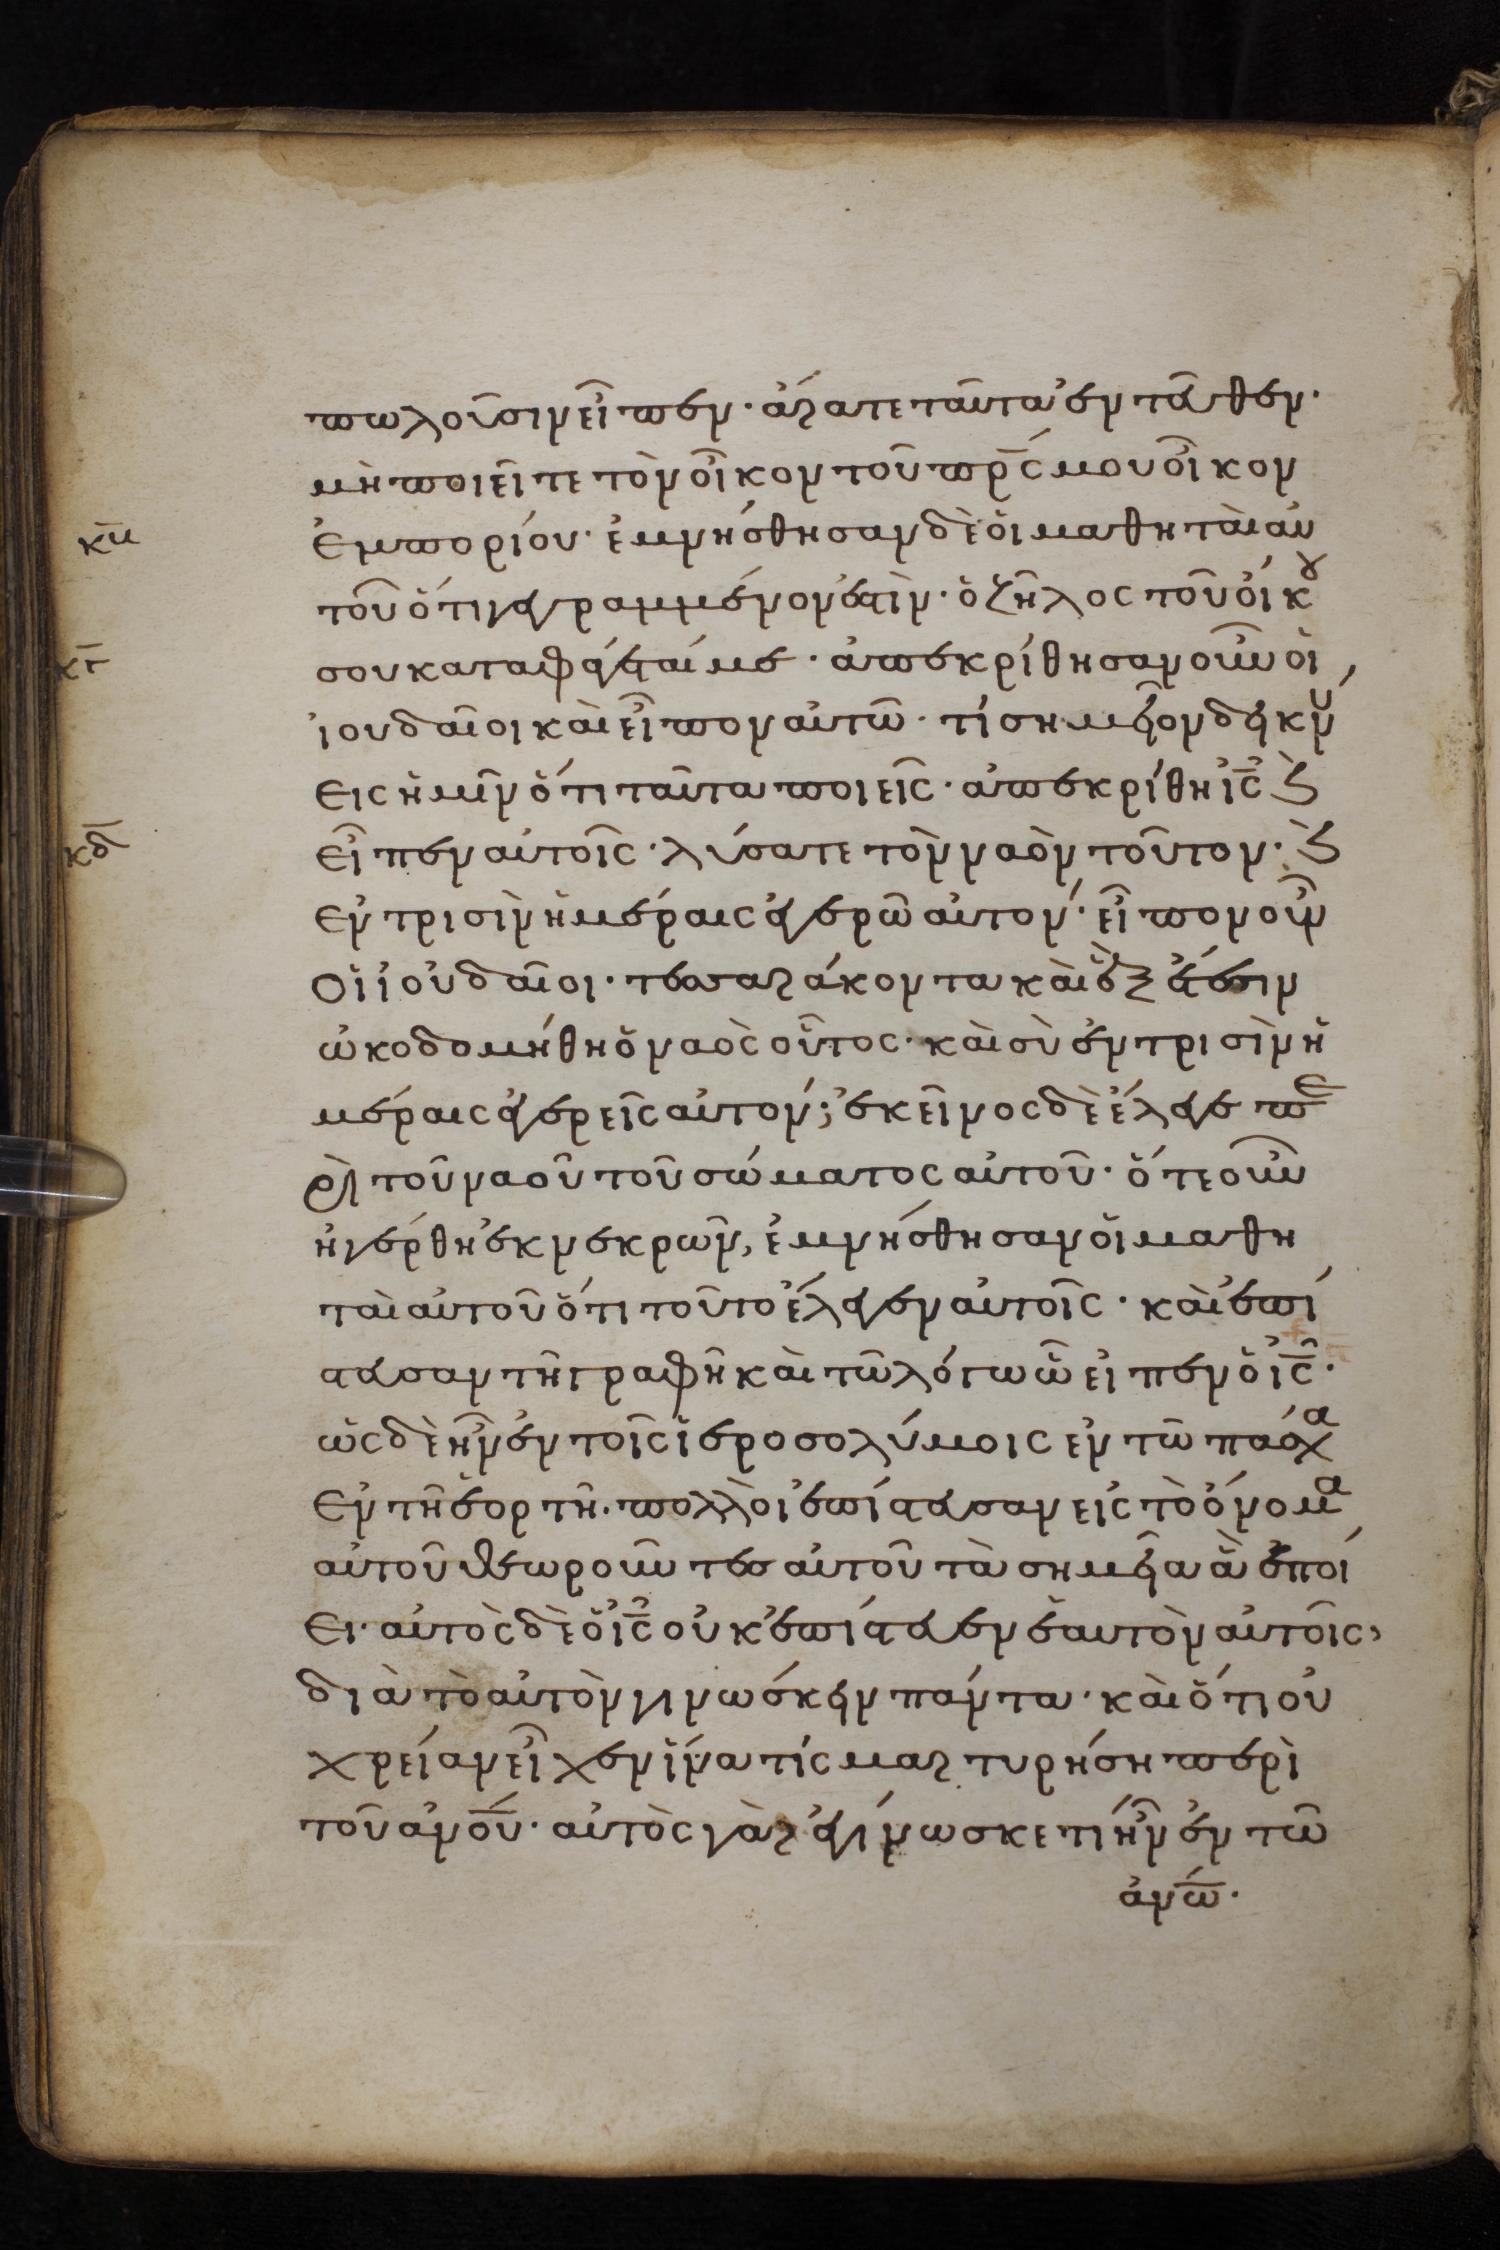 πωλοῦσιν εἶπεν· ἄρατε ταῦτα ἐντεῦθεν·
μὴ ποιεῖτε τὸν οἶκον τοῦ πρ̅ς μου οἶκον
κβ ἐμπορίου· ἐμνήσθησαν δὲ οἱ μαθηταὶ αὐ
τοῦ ὅτι γεγραμμένον ἐστὶν· ὁ ζῆλος τοῦ οἴκου
κγ σου καταφάγεταί με· ἀπεκρίθησαν οὖν οἱ
ἰουδαῖοι καὶ εἶπον αὐτῶ· τί σημεῖον δεικνύ
εις ἡμῖν ὅτι ταῦτα ποιεῖς· ἀπεκρίθη ι̅ς̅ ϗ
κδ εἶπεν αὐτοῖς· λύσατε τὸν ναὸν τοῦτον· ϗ
ἐν τρισὶν ἡμέραις ἐγερῶ αὐτον· εἶπον οὖν
οἱ ἰουδαῖοι· τεσσαράκοντα καὶ ἓξ ἔτεσιν
ὠκοδομήθη ὁ ναὸς οὗτος· καὶ σὺ ἐν τρισὶν ἡ
μέραις ἐγερεῖς αὐτον; ἐκεῖνος δὲ ἔλεγε πε
ρὶ τοῦ ναοῦ τοῦ σώματος αὐτοῦ· ὅτε οὖν
ἠγέρθη ἐκ νεκρων, ἐμνήσθησαν οἱ μαθη
ταὶ αὐτοῦ ὅτι τοῦτο ἔλεγεν αὐτοῖς· καὶ ἐπί
στευσαν τῆ γραφῆ καὶ τῶ λόγω ὧ εἶπεν ὁ ι̅ς̅·
ὡς δὲ ἦν ἐν τοῖς ἱεροσολύμοις ἐν τῶ πάσχα
ἐν τῆ ἑορτῆ· πολλοὶ ἐπίστευσαν εἰς τὸ ὄνομα
αὐτοῦ θεωροῦντες αὐτοῦ τὰ σημεῖα ἃ ἐποί
ει· αὐτὸς δὲ ὁ ι̅ς̅ οὐκ ἐπίστευεν ἑαυτὸν αὐτοῖς,
διὰ τὸ αὐτὸν γινώσκειν πάντα· καὶ ὅτι οὐ
χρείαν εἶχεν ἵνα τίς μαρτυρήση περὶ
τοῦ ἀν̅ο̅υ̅· αὐτὸς γὰρ ἐγίνωσκε τί ἦν ἐν τῶ
ἀν̅ω̅·